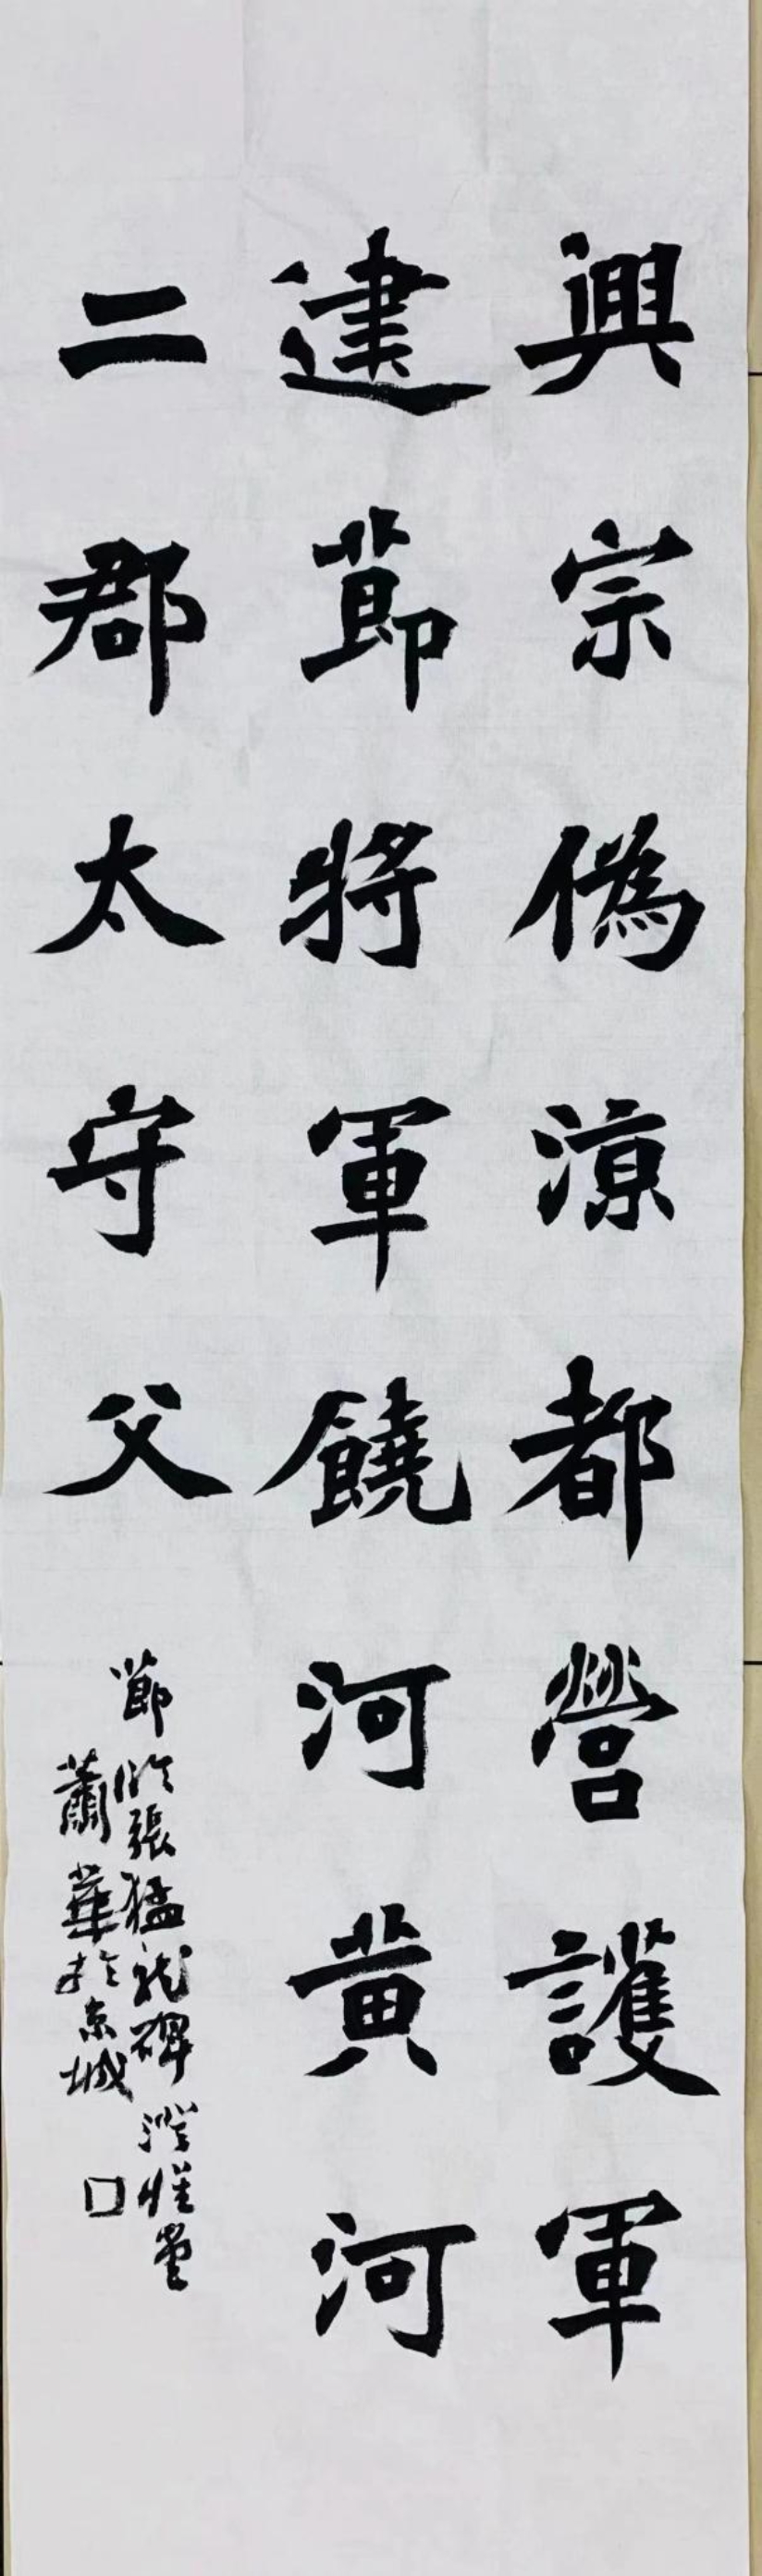 興宗偽涼都營護軍
建節將軍饒河黃河
二郡太守父
節臨張猛龍碑
蕭華於京城